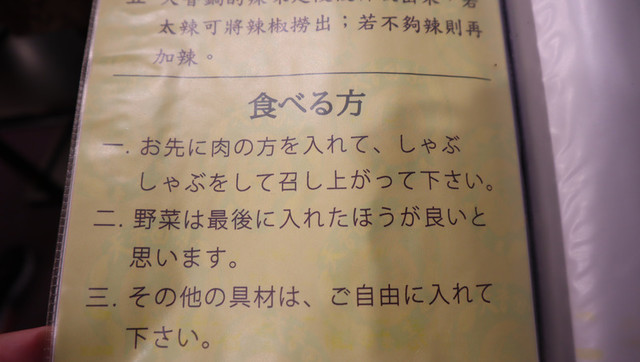 太辣可將辣椒撈出；若不夠辣則再
加辣。
食べる方
一. お先に肉の方を入れて、しゃぶ
しゃぶをして召し上がって下さい。
二. 野菜は最後に入れたほうが良いと
思います。
三. その他の具材は、ご自由に入れて
下さい。